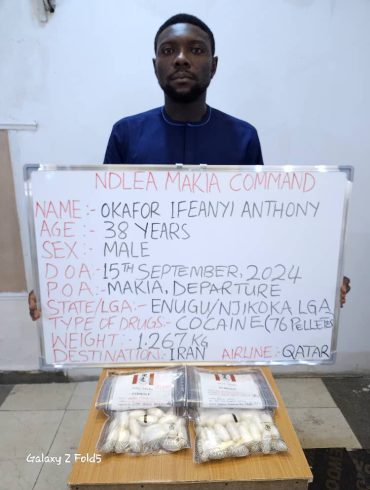 NDLEA MAKIA COMMAND
NAME:- OKAFOR IFEANYI ANTHONY
AGE:- 38 YEARS
SEX:- MALE
D.O.A:- 15TH SEPTEMBER, 2024
P.O.A:- MAKIA, DEPARTURE
STATE/LGA:- ENUGU/NJIKOKA LGA
TYPE OF DRUGS:- COCAINE (76 PELLETES
WEIGHT:- 1.267 KG
DESTINATION:- IRAN AIRLINE:- QATAR
Galaxy Z Fold5